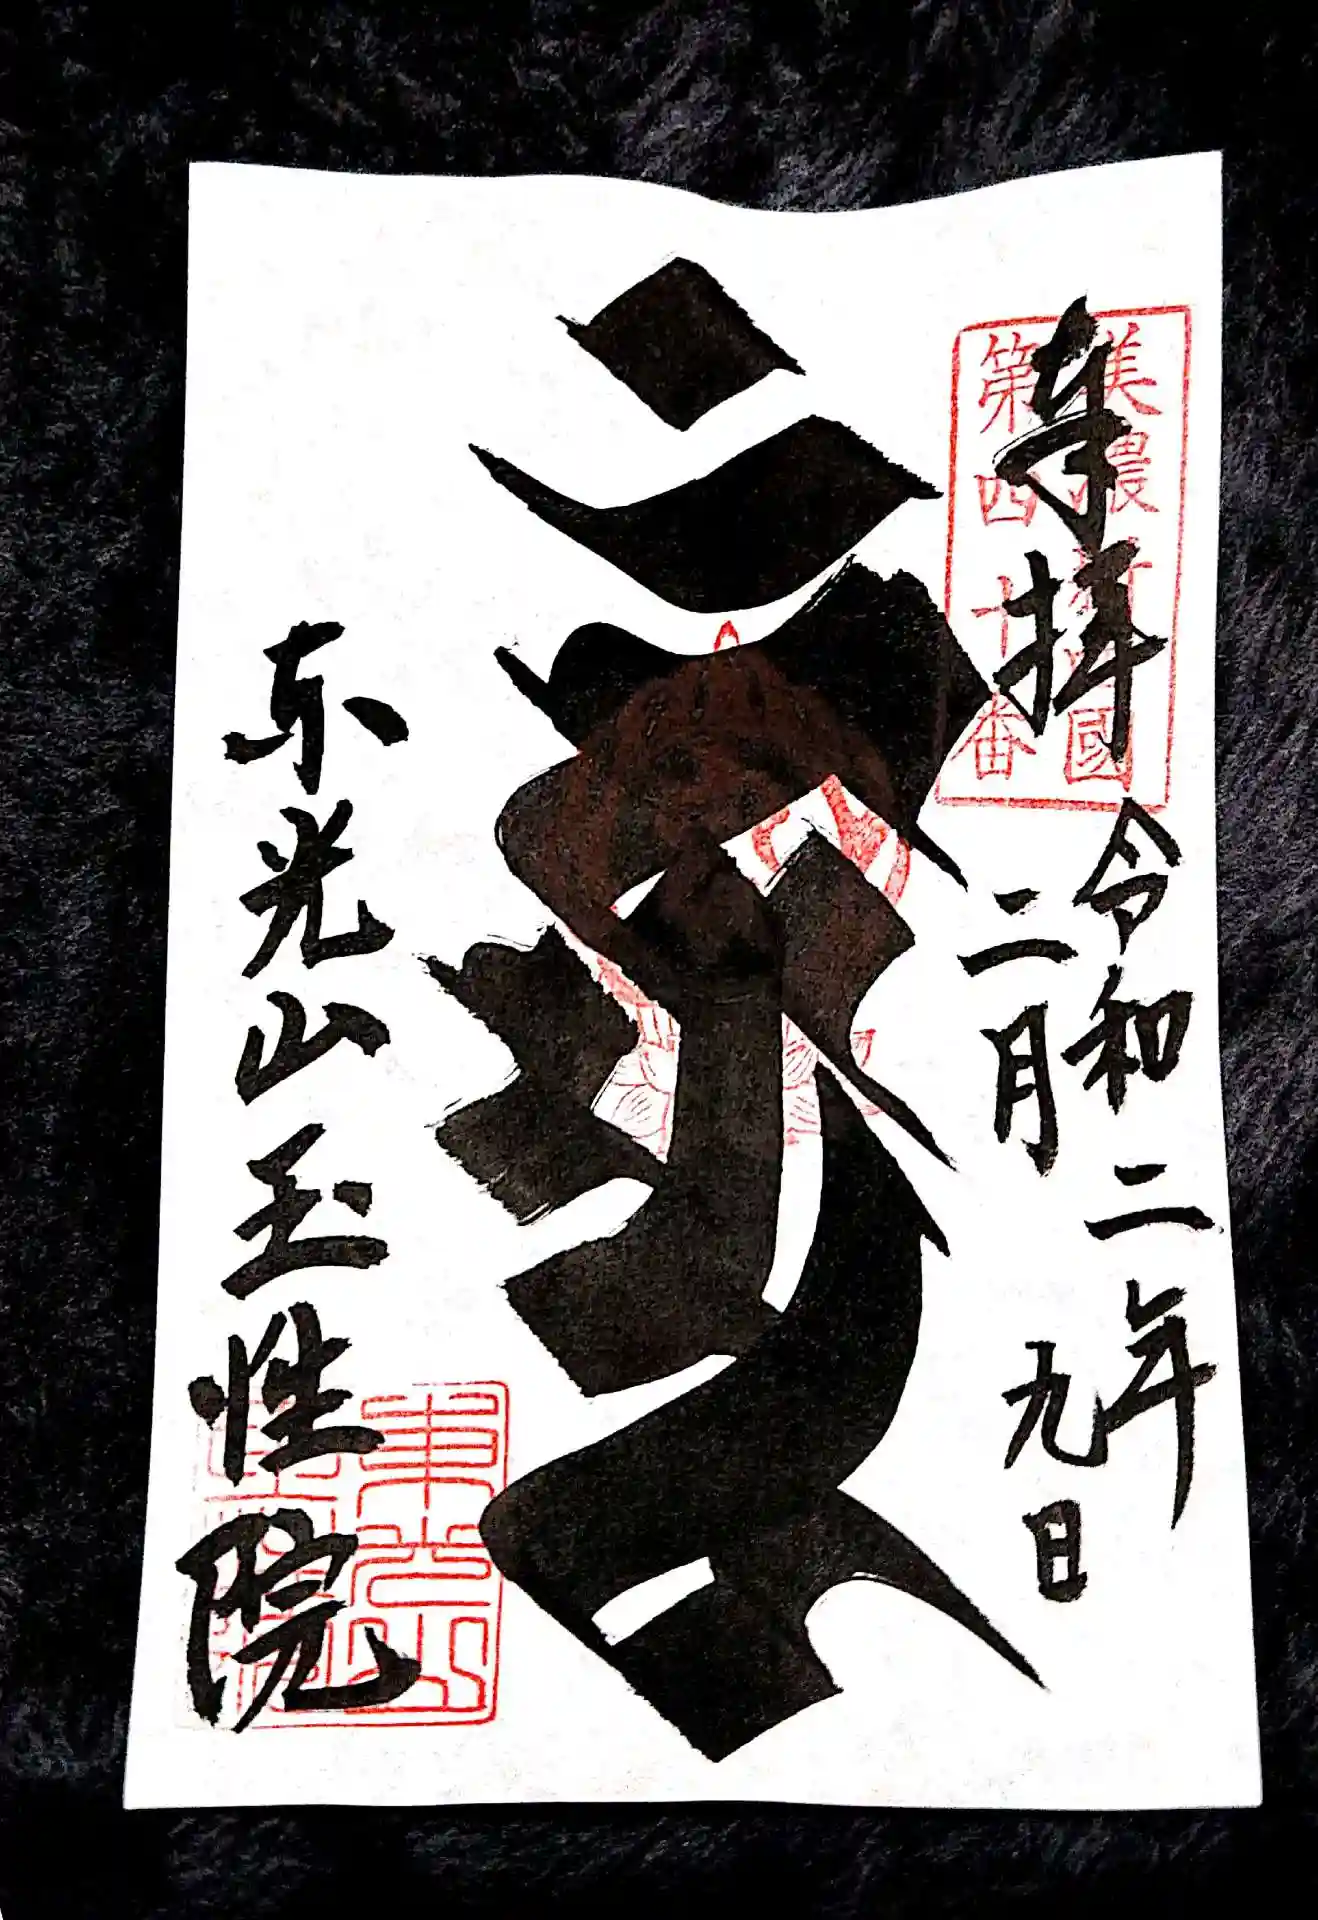 奉拝
美濃新四國
第四十番
令和二年
二月九日
东光山玉性院
東光山